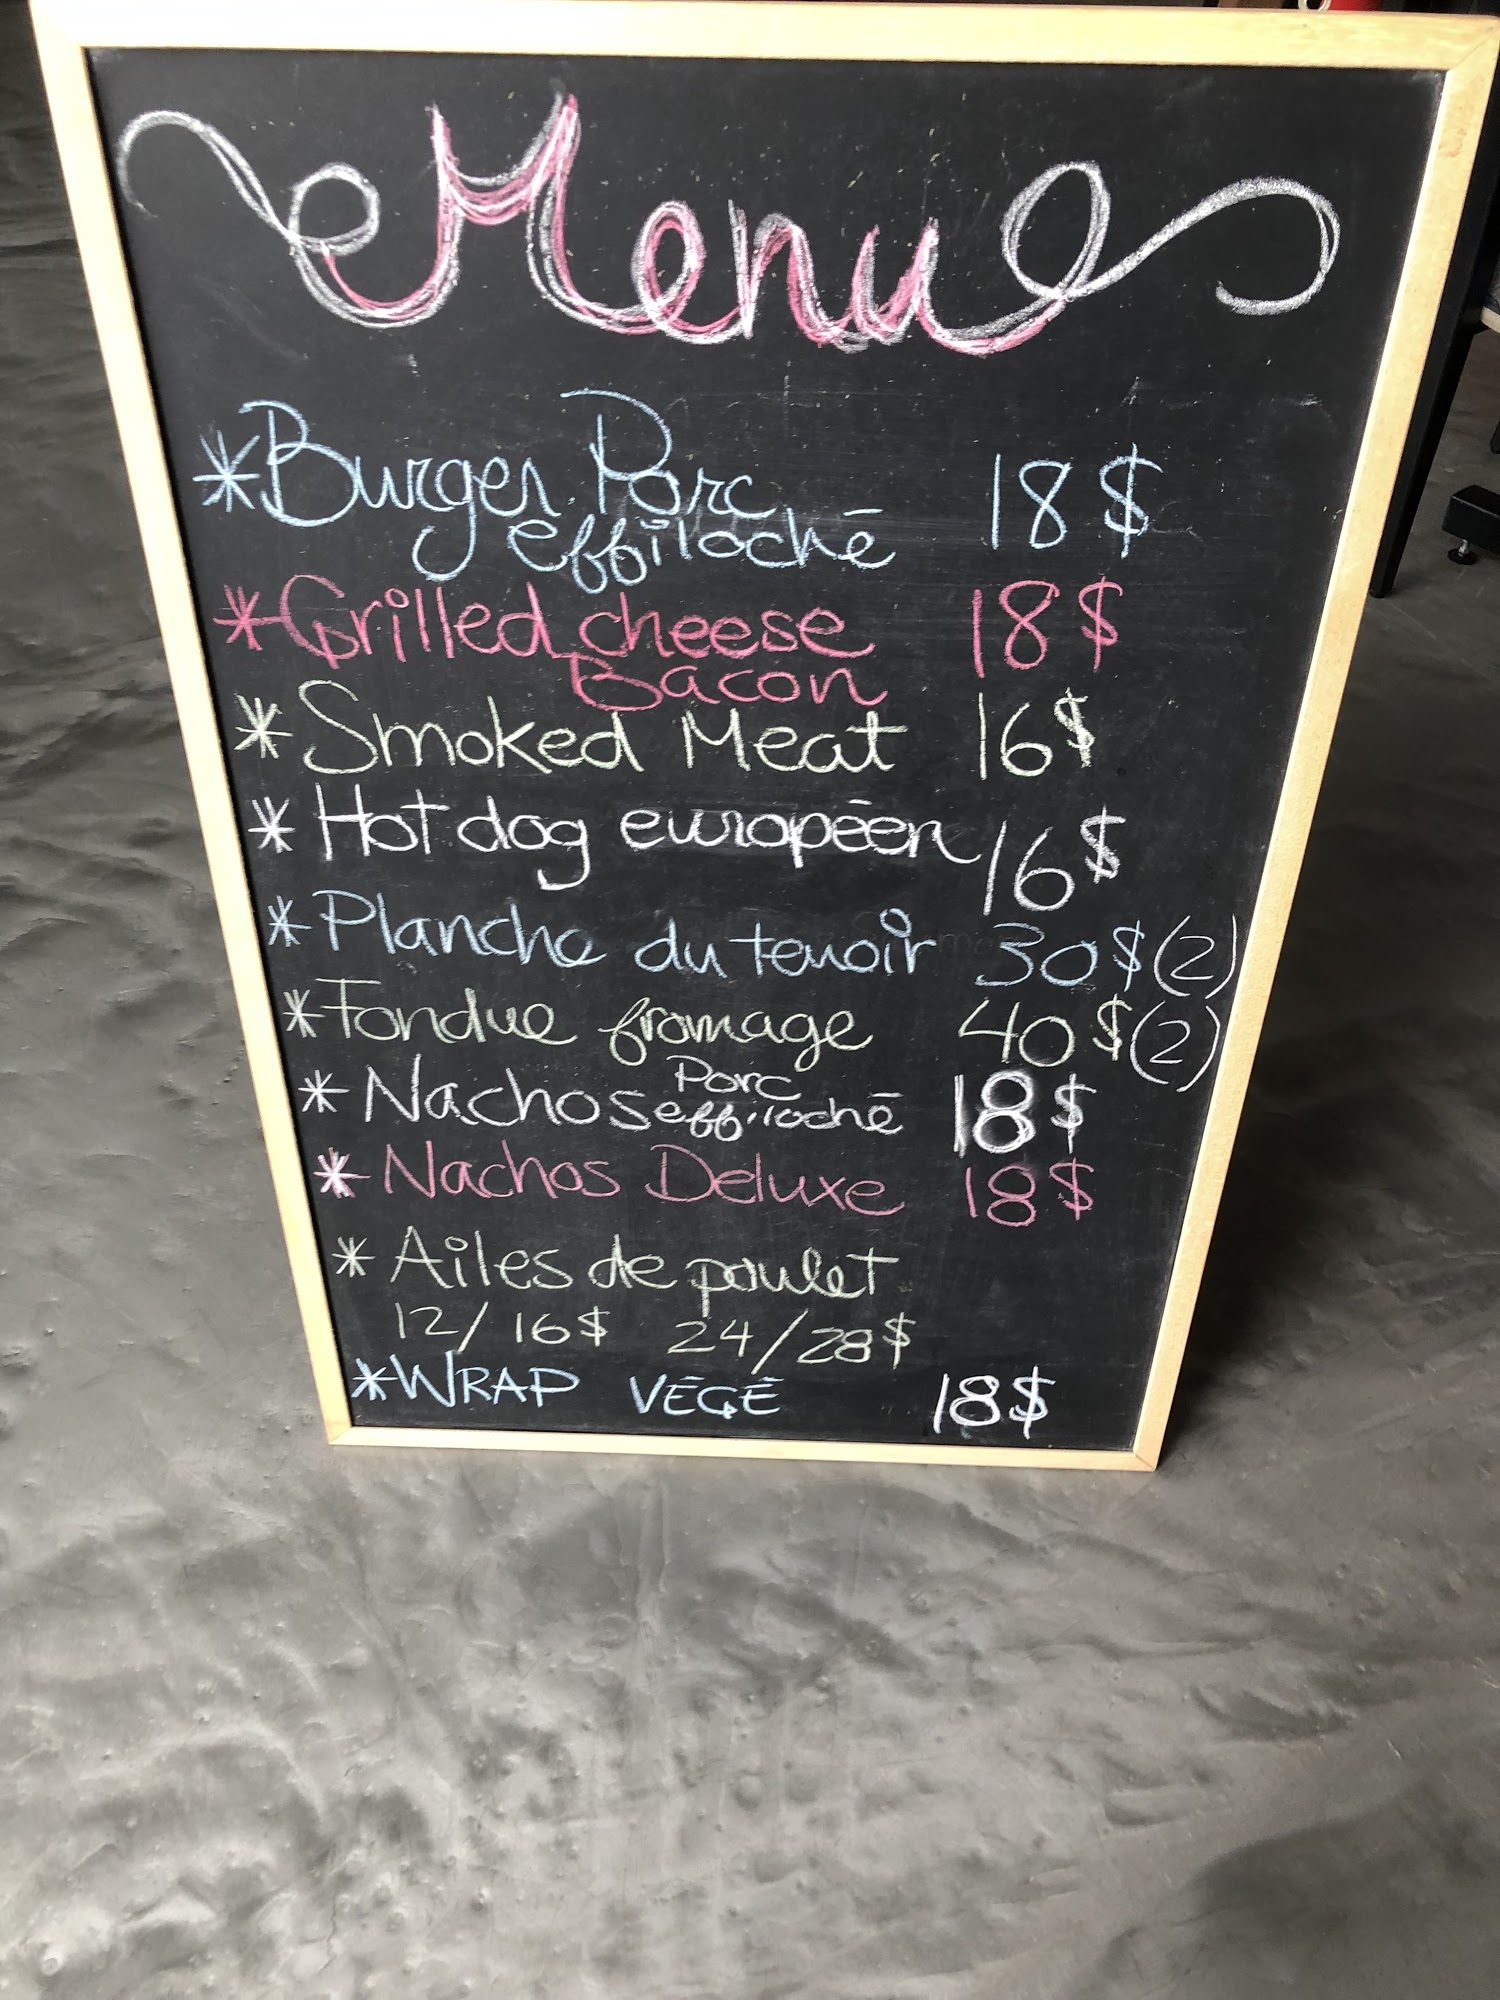 Menu
*Burger Porc 18$
effiloché
*Grilled cheese 18$
Bacon
*Smoked Meat 16$
*Hot dog européen 16$
*Planche du tenoir 30$ (2)
*Fondue fromage 40$ (2)
*Nachos Porc effiloché 18$
*Nachos Deluxe 18$
*Ailes de poulet
12/16$ 24/28$
*WRAP VÉGÉ 18$